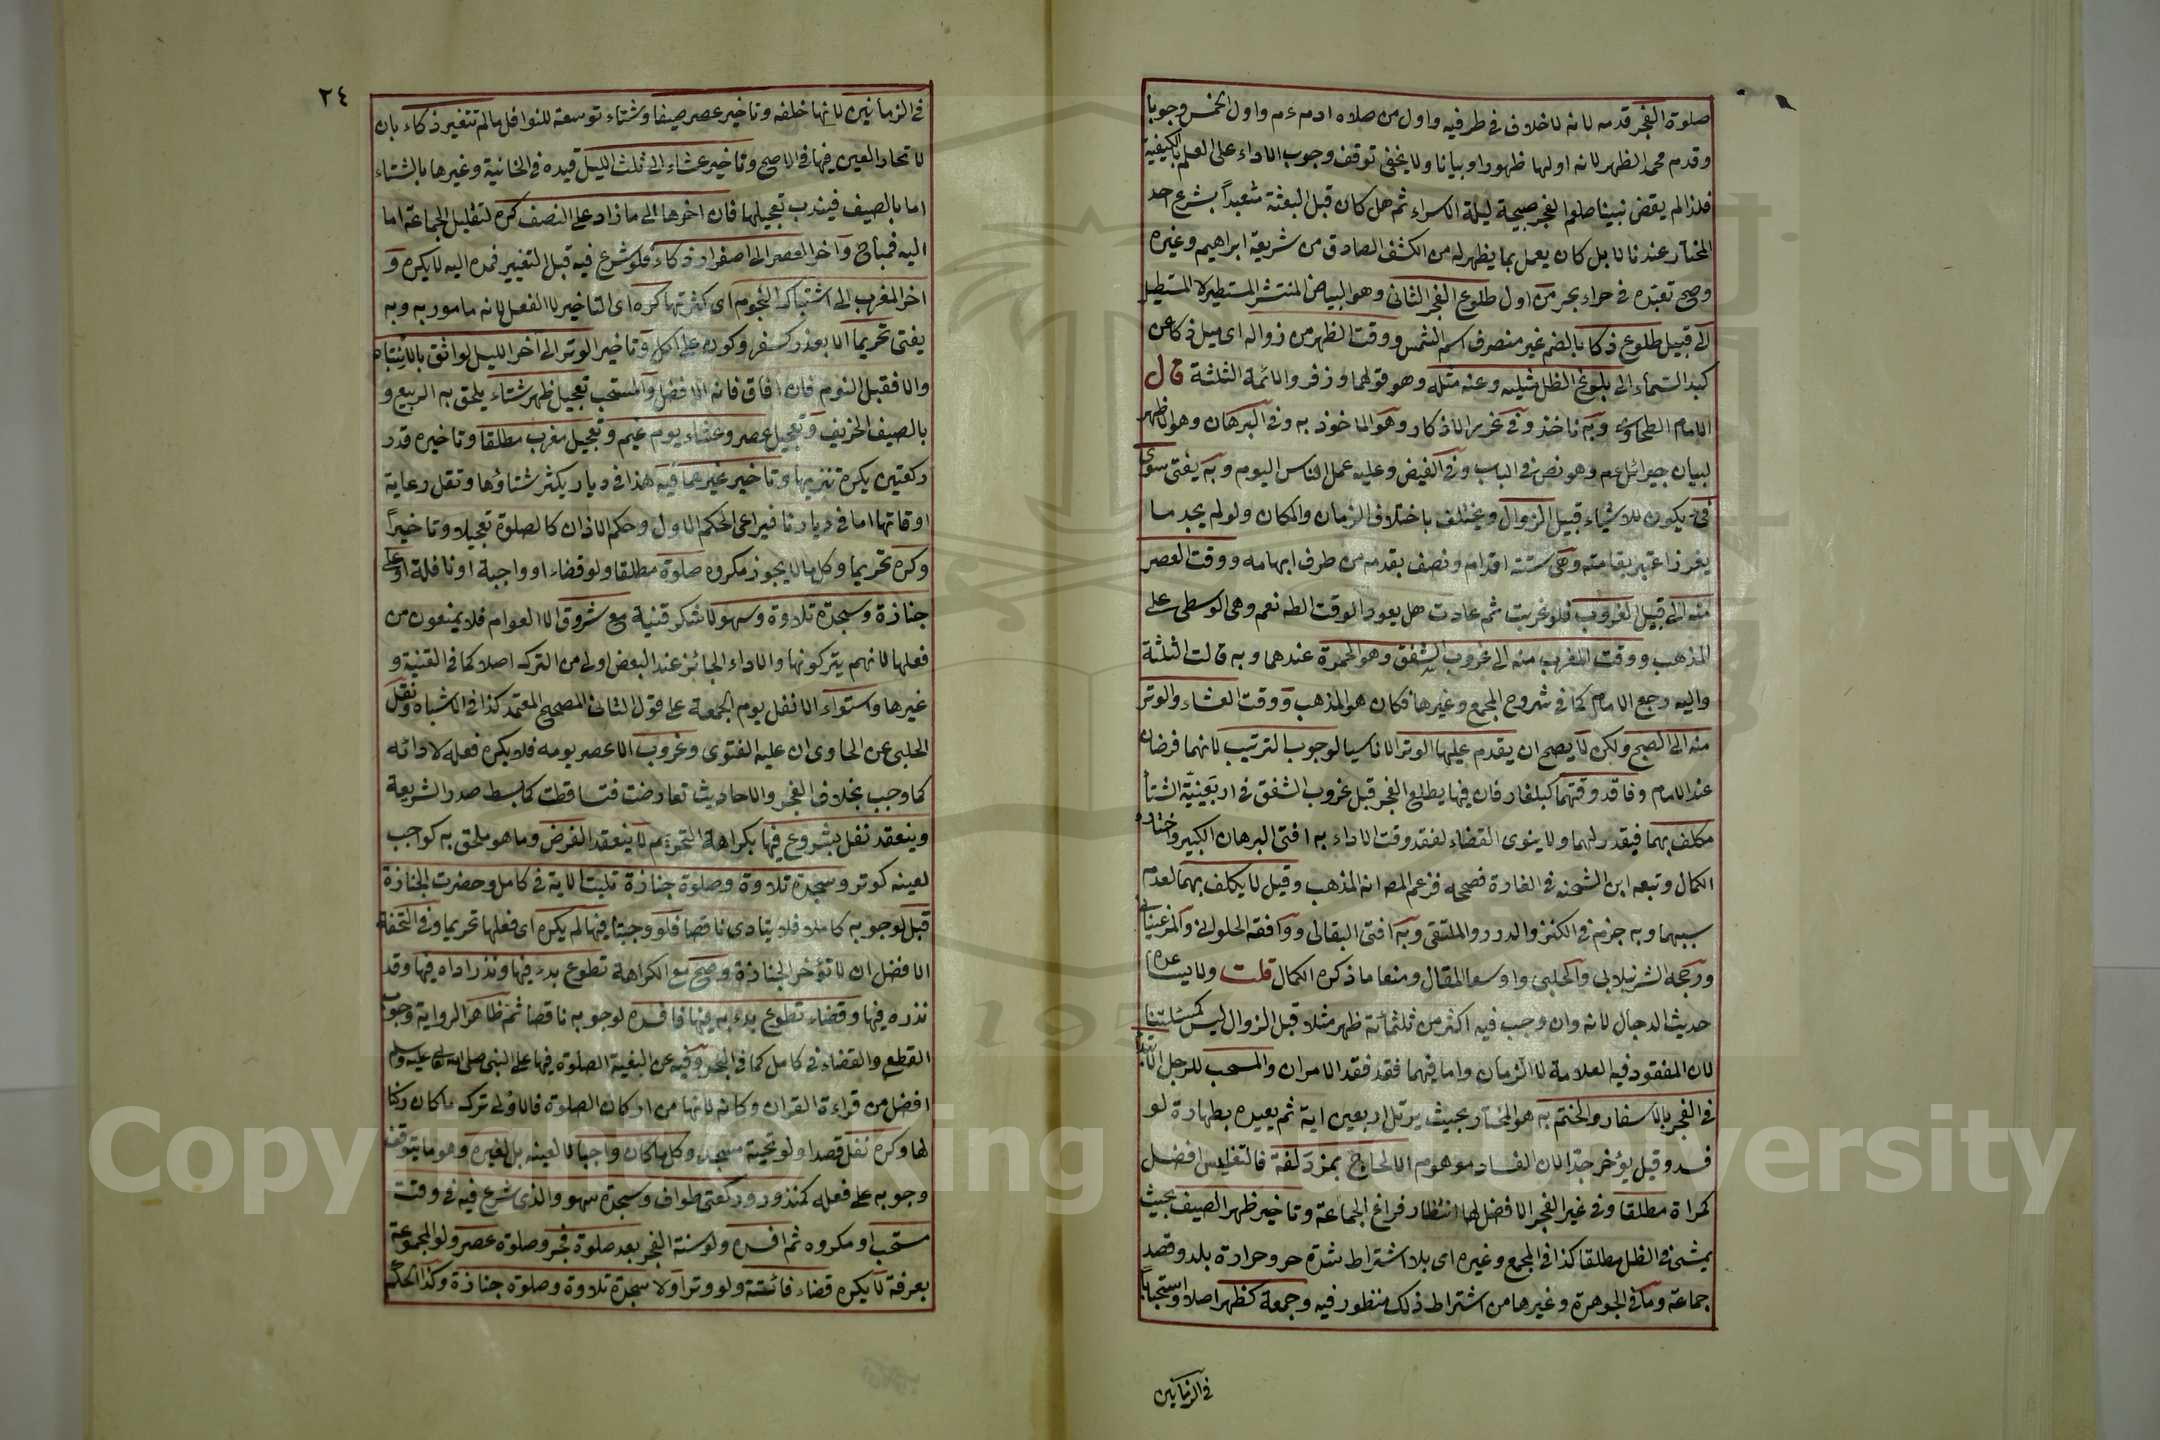 صلوة الفجر قدمه لانه لا خلاف في طرفيه واول من صلاه ادم ءم واول الخمس وجوبا
وقدم محمد الظهر لانه اولها ظهورا وبيانا ولا يخفى توقف وجوب الاداء على العلم بالكيفية
فلذا لم يقض نبينا صلوة الفجر صبيحة ليلة الاسراء ثم هل كان قبل البعثة متعبدا بشرع احد
المختار عندنا لا بل كان يعمل بما يظهر له من الكشف الصادق من شريعة ابراهيم وغيره
وصح تعبده في حراء بحر من اول طلوع الفجر الثاني وهو البياض المنتشر المستطير لا المستطيل
الى قبيل طلوع ذكا بالضم غير منصرف اسم الشمس ووقت الظهر من زواله اى ميل ذكا عن
كبد السماء الى بلوغ الظل مثليه وعنه مثله وهو قولهما وزفر والائمة الثلثة قال
الامام الطحاوى وبه ناخذ وفي غرر الاذكار وهو الماخوذ به وفي البرهان وهو الاظهر
لبيان جبرائل ءم وهو نص في الباب وفي الفيض وعليه عمل الناس اليوم وبه يفتى سوى
فىء يكون للاشياء قبيل الزوال ويختلف باختلاف الزمان والمكان ولو لم يجد ما
يغرز اعتبر بقامته وهى ستة اقدام ونصف بقدمه من طرف ابهامه ووقت العصر
منه الى قبيل الغروب فلو غربت ثم عادت هل يعود الوقت الظ نعم وهى الوسطى على
المذهب ووقت المغرب منه الى غروب الشفق وهو الحمرة عندهما وبه قالت الثلثة
واليه رجع الامام كما في شروح المجمع وغيرها فكان هو المذهب ووقت العشاء والوتر
منه الى الصبح ولكن لا يصح ان يقدم عليها الوتر الا ناسيا لوجوب الترتيب لانهما فرضان
عند الامام وفاقد وقتهما كبلغار فان فيها يطلع الفجر قبل غروب الشفق في اربعينية الشتا
مكلف بهما فيقدر لهما ولا ينوى القضاء لفقد وقت الاداء به افتى البرهان الكبير واختاره
الكمال وتبعه ابن الشحنه في الغازه فصححه فزعم المص انه المذهب وقيل لا يكلف بهما لعدم
سببهما وبه جزم في الكنز والدرر والملتقى وبه افتى البقالى ووافقه الحلوانى والمرغينانى
ورجحه الشرنبلالى والحلبى واوسعا المقال ومنعا ما ذكره الكمال قلت ولا يساعده
حديث الدجال لانه وان وجب فيه اكثر من ثلثمائة ظهر مثلا قبل الزوال ليس كمسئلتنا
لان المفقود فيه العلامة لا الزمان واما فيهما فقد فقد الامران والمستحب للرجل الابتدا
في الفجر بالاسفار والختم به هو المختار بحيث يرتل اربعين اية ثم يعيده بطهارة لو
فسد وقيل يؤخر جدا لان الفساد موهوم الا لحاج بمزدلفة فالتغليس افضل
كمراة مطلقا وفي غير الفجر الافضل لها انتظار فراغ الجماعة وتاخير ظهر الصيف بحيث
يمشى في الظل مطلقا كذا في المجمع وغيره اى بلا اشتراط شدة حر وحرارة بلد وقصد
جماعة وما في الجوهرة وغيرها من اشتراط ذلك منظور فيه وجمعة كظهر اصلا واستحبابا
في الزمانين
٢٤
في الزمانين لانها خلفه وتاخير عصر صيفا وشتاء توسعة للنوافل ما لم تتغير ذكاء بان
لا تحار العين فيها في الاصح وتاخير عشاء الى ثلث الليل قيده في الخانية وغيرها بالشتاء
اما بالصيف فيندب تعجيلها فان اخرها الى ما زاد على النصف كره لتقليل الجماعة اما
اليه فمباح واخر العصر الى اصفرار ذكاء فلو شرع فيه قبل التغيير فمده اليه لا يكره و
اخر المغرب الى اشتباك النجوم اى كثرتها كره اى التاخير لا الفعل لانه مامور به وبه
يفتى تحريما الا بعذر كسفر وكونه على اكل وتاخير الوتر الى اخر الليل لواثق بالانتباه
والا فقبل النوم فان افاق فانه الافضل والمستحب تعجيل ظهر شتاء يلحق به الربيع و
بالصيف الخريف وتعجيل عصر وعشاء يوم غيم وتعجيل مغرب مطلقا وتاخيره قدر
ركعتين يكره تنزيها وتاخير غيرها فيه هذا في ديار يكثر شتاؤها وتقل رعاية
اوقاتها اما في ديارنا فيراعى الحكم الاول وحكم الاذان كالصلوة تعجيلا وتاخيرا
وكره تحريما وكل ما لا يجوز مكروه صلوة مطلقا ولو قضاء او واجبة او نافلة او على
جنازة وسجدة تلاوة وسهو لا شكر قنية مع شروق الا العوام فلا يمنعون من
فعلها لانهم يتركونها والاداء الجائز عند البعض اولى من الترك اصلا كما في القنية و
غيرها واستواء الا نفل يوم الجمعة على قول الثانى المصحح المعتمد كذا في الاشباه ونقل
الحلبى عن الحاوى ان عليه الفتوى وغروب الا عصر يومه فلا يكره فعله لادائه
كما وجب بخلاف الفجر والاحاديث تعارضت فتساقطت كما بسط صدر الشريعة
وينعقد نفل بشروع فيها بكراهة التحريم لا ينعقد الفرض وما هو ملحق به كواجب
لعينه كوتر وسجدة تلاوة وصلوة جنازة تليت الاية في كامل وحضرت الجنازة
قبل لوجوبه كاملا فلا يتادى ناقصا فلو وجبتا فيها لم يكره اى فعلها تحريما وفي التحفة
الافضل ان لا تؤخر الجنازة وصح مع الكراهة تطوع بدء فيها ونذر اداه فيها وقد
نذره فيها وقضاء تطوع بدء به فيها فافسده لوجوبه ناقصا ثم ظاهر الرواية وجوب
القطع والقضاء في كامل كما في البحر وفيه عن البغية الصلوة فيها على النبى صلى الله تعالى عليه وسلم
افضل من قراءة القران وكانه لانها من اركان الصلوة فالاولى ترك ما كان ركنا
لها وكره نفل قصدا ولو تحية مسجد وكل ما كان واجبا لا لعينه بل لغيره وهو ما يتوقف
وجوبه على فعله كمنذور وركعتى طواف وسجدة سهو والذى شرع فيه في وقت
مستحب او مكروه ثم افسده ولو سنة الفجر بعد صلوة فجر وصلوة عصر ولو المجموعة
بعرفة لا يكره قضاء فائتة ولو وترا ولا سجدة تلاوة وصلوة جنازة وكذا الحكم
Copyright © King Saud University